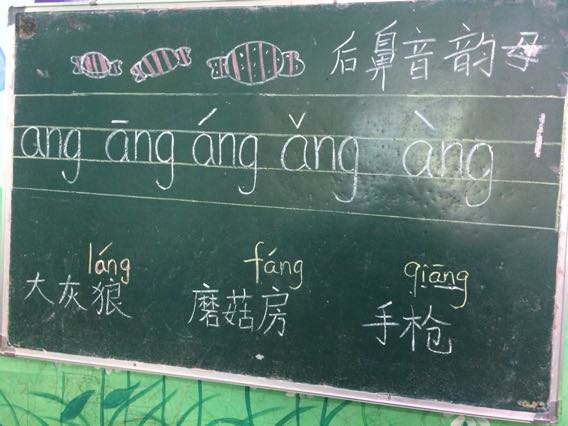 后鼻音韵母
ang āng áng ǎng àng
láng fáng qiāng
大灰狼 磨菇房 手枪